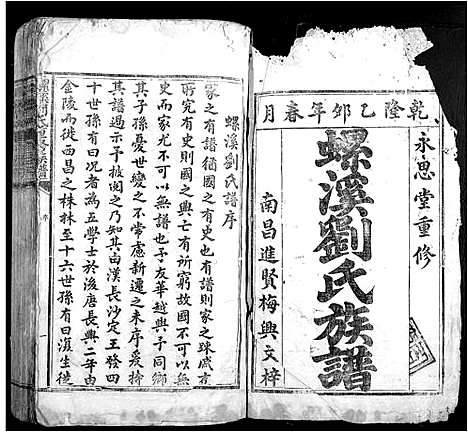 乾隆乙卯年春月
永思堂重修
螺溪劉氏族譜
南昌進賢梅興文梓
螺溪劉氏譜序
家之有譜猶國之有史也家有譜則家之踈戚有
所究有史則國之興亡有所窮故國不可以無
史而家尤不可以無譜也予友華越與予同鄉
其子孫憂世變之不常慮新遷之未序爰持
其譜過示予披閱之乃知其由漢長沙定王發四
十世孫有曰况者為五學士於後唐長興二年由
金陵而徙西昌之株林至十六世孫有曰漢生徙